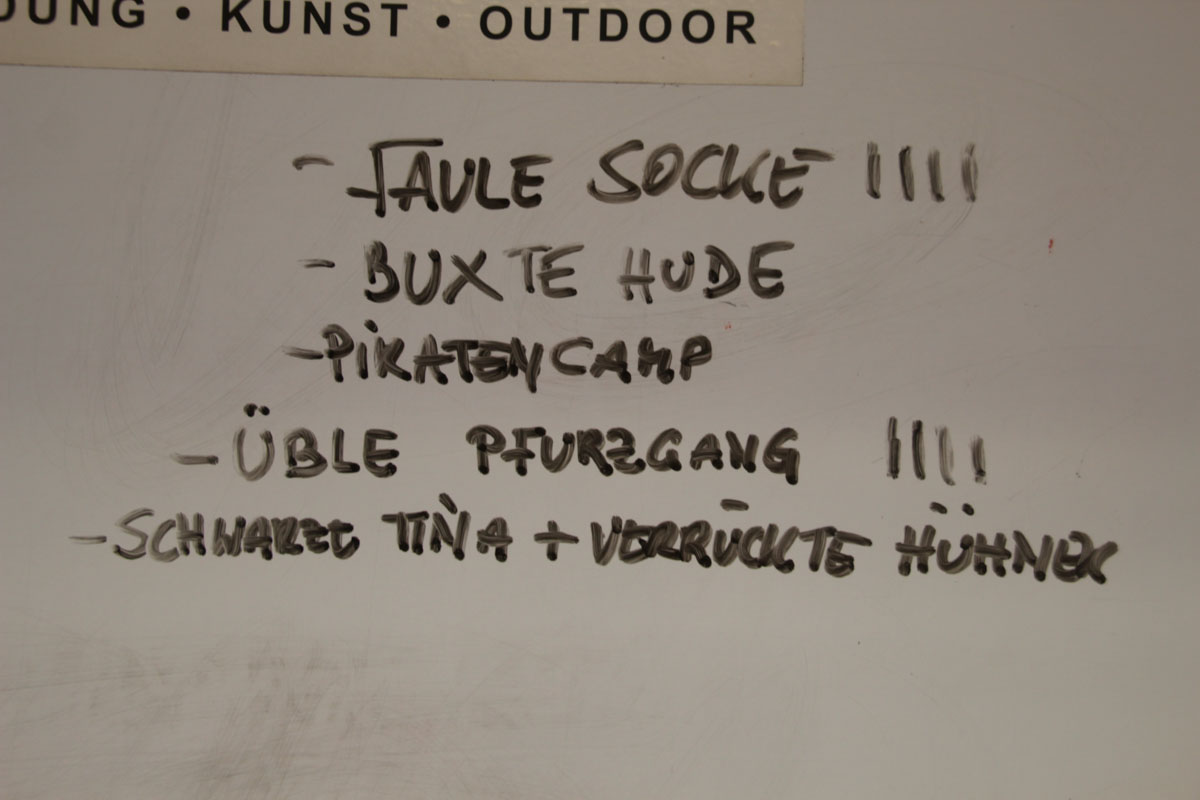 DUNG • KUNST • OUTDOOR
- FAULE SOCKE ||||
- BUXTE HUDE
- PiRATENCAMP
- ÜBLE PFURZGANG ||||
- SCHWARZE TiNA + VERRÜCKTE HÜHNER